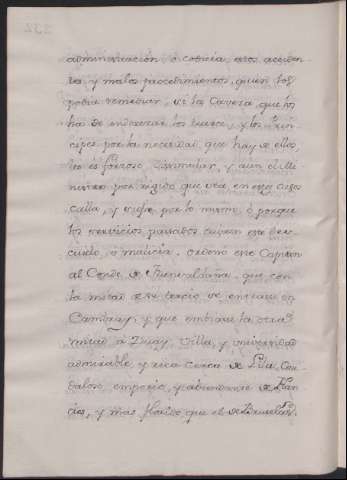 administración ò codicia, atos acciden
tes, y malos procedimientos, quien los
podra remediar, si la Caveza, que los
ha de enderezar los tuerce, y los Prin
cipes por la necesidad que hay de ellos,
les es forzoso disimular, y aun el Mi
nistro por rigido que sea en estos casos
calla, y sufre por lo mismo, ó porque
los servicios pasados cubren este des
cuido, ò malicia, ordenó este Capitan
al Conde de Fuensaldaña, que con
la mitad de su tercio se entrase en
Cambray, y que embiase la otra
mitad à Duay, Villa, y Universidad
admirable, y rica cerca de Lila, Con
emporio, y abundante de Flan
des, y mas que el de Bruselas.